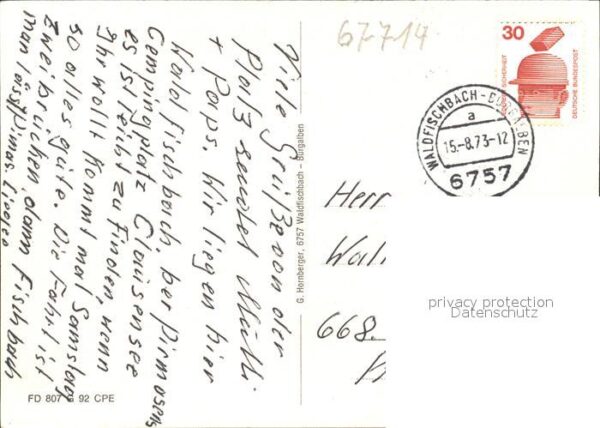 Viele Grüße von der
Pfalz sendet Mutti
+ Paps. Wir liegen hier
Waldfischbach, bei Pirmasens
Campingplatz Clausensee
es ist leicht zu finden, wenn
Ihr wollt kommt mal Samstag
so alles gute. Die Fahrt ist
Zweibrücken, dann Fischbach
man lässt Pirmas. liegen
67714
30
SICHERHEIT
DEUTSCHE BUNDESPOST
WALDFISCHBACH-BURGALBEN
a
15.-8.73-12
6757
G. Hornberger, 6757 Waldfischbach - Burgalben
Herr
Wal
668
privacy protection
Datenschutz
FD 807 92 CPE